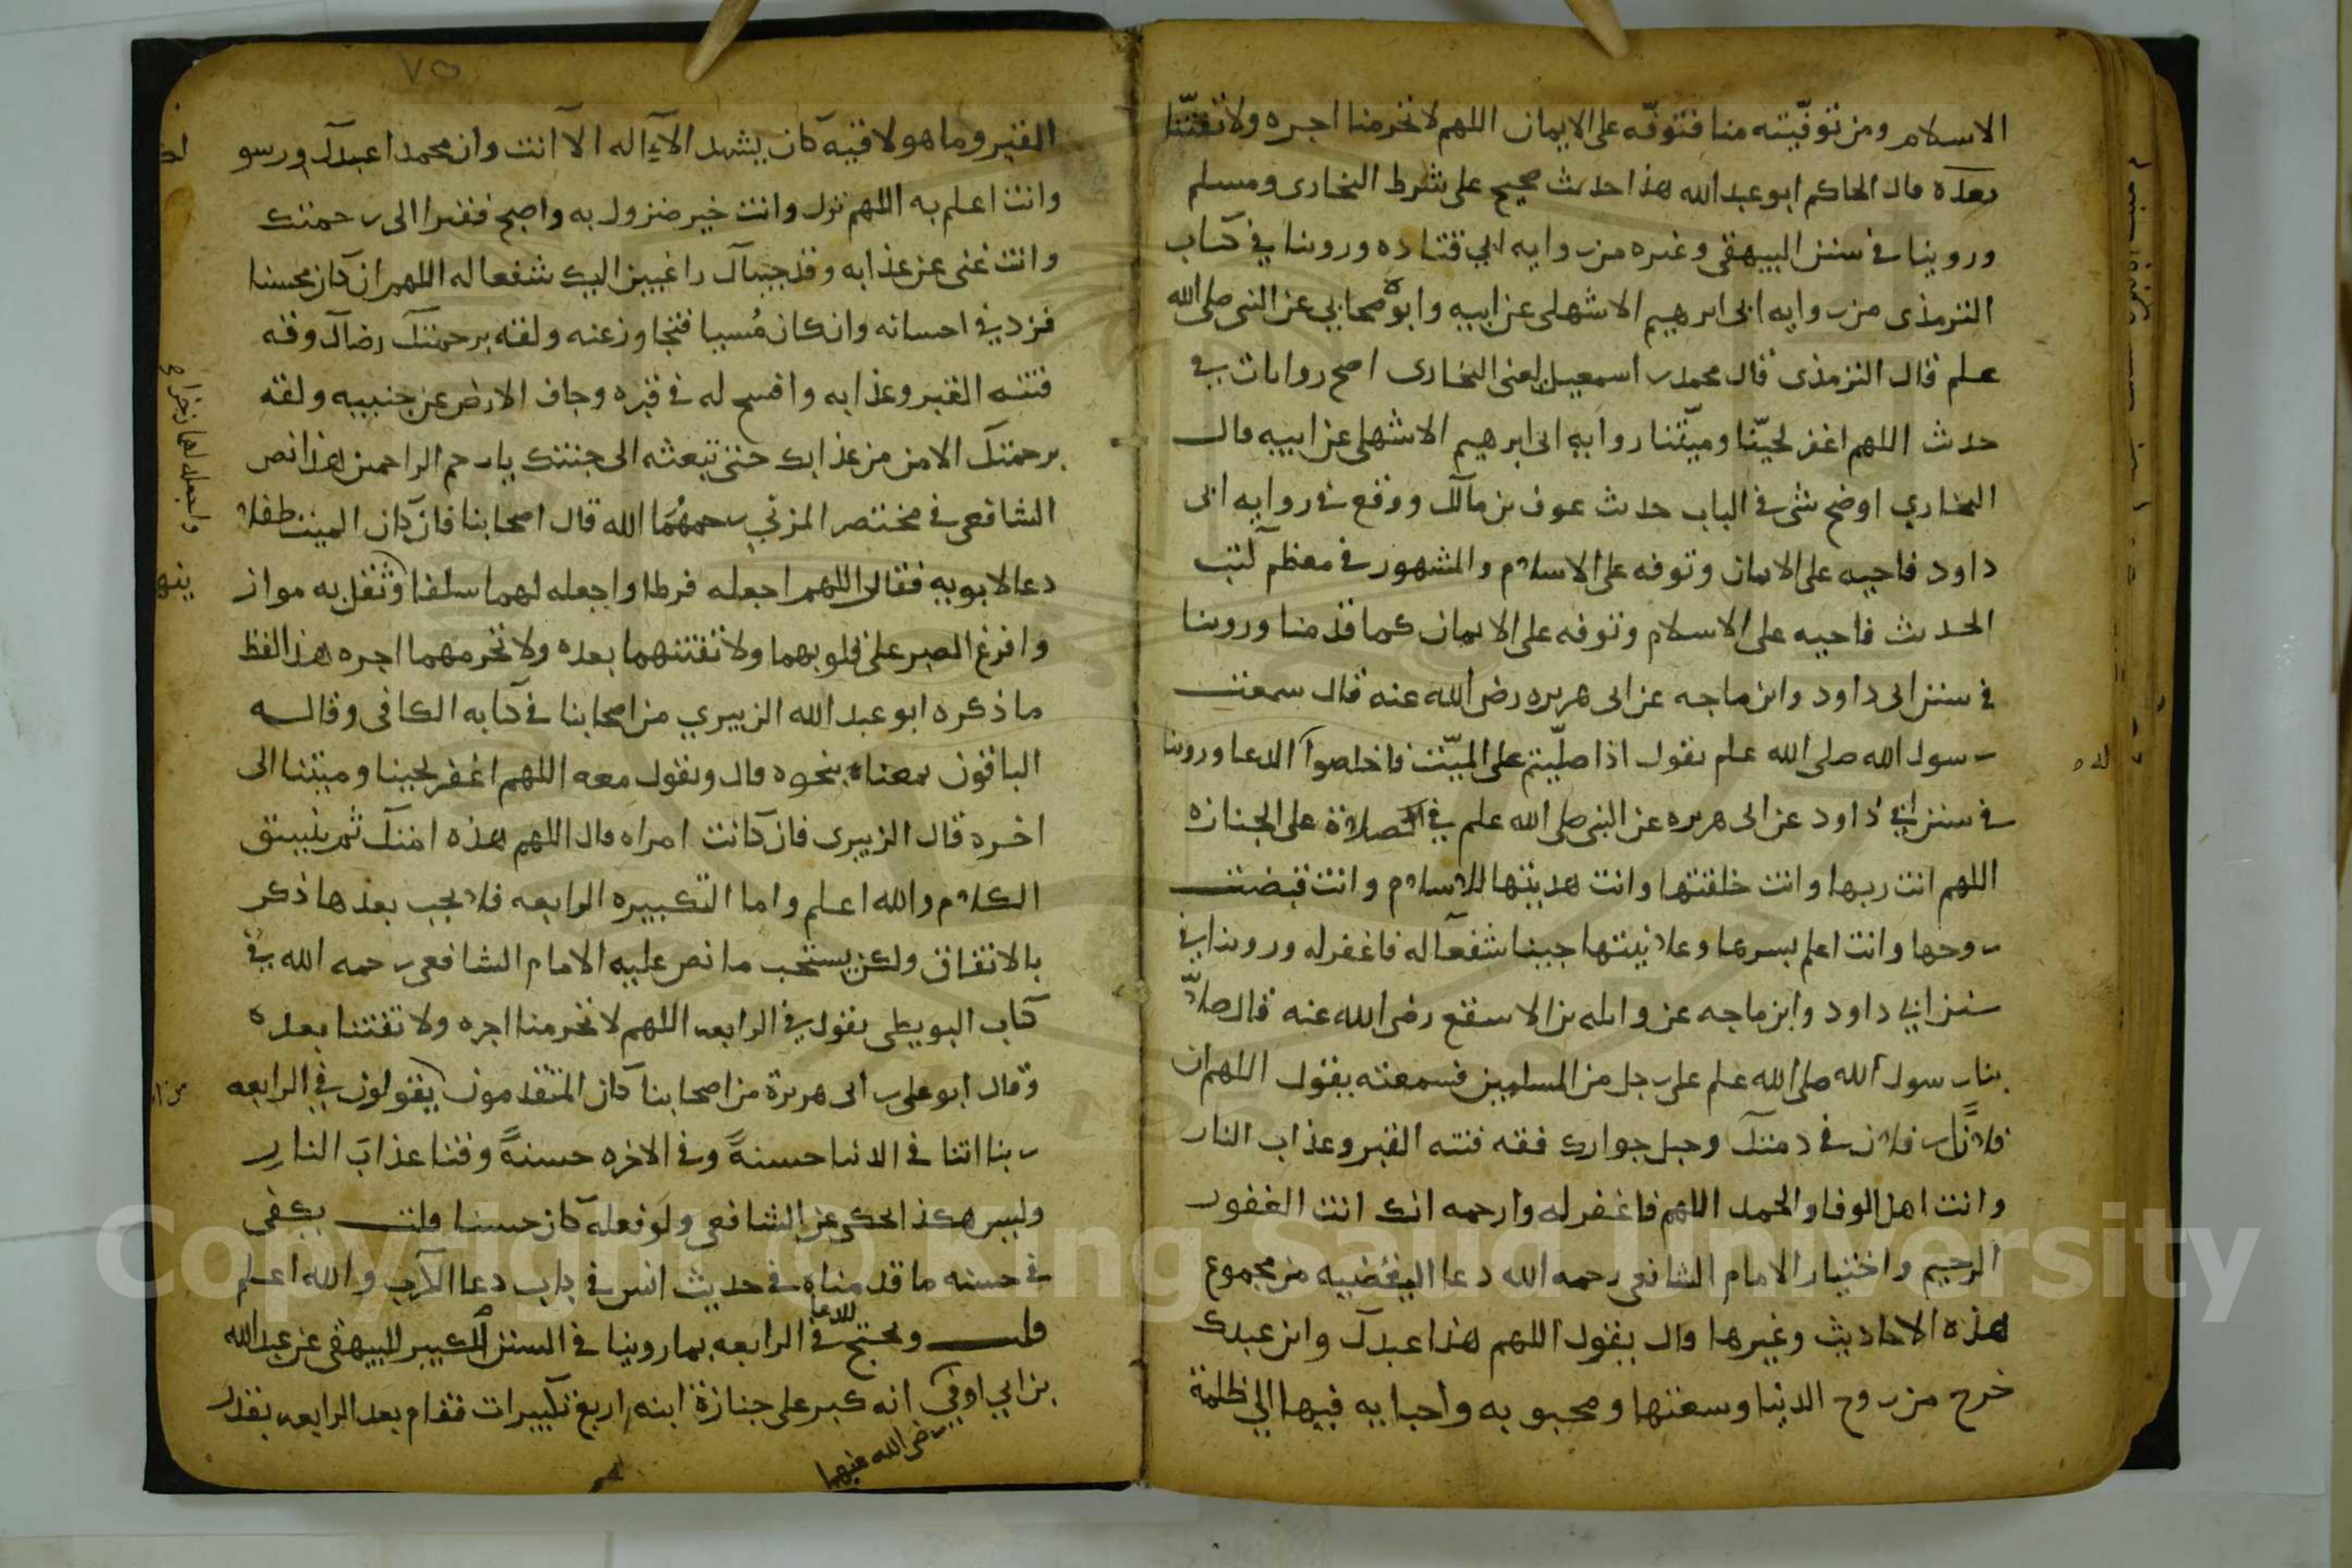 الاسلام ومن توفيته منا فتوفه على الايمان اللهم لا تحرمنا اجره ولا تفتنا
بعده قال الحاكم ابو عبد الله هذا حديث صحيح على شرط البخارى ومسلم
وروينا في سنن البيهقى وغيره من روايه ابي قتاده وروينا في كتاب
الترمذى من روايه ابى ابرهيم الاشهلى عن ابيه وابوه صحابي عن النبى صلى الله
علم قال الترمذى قال محمد بن اسمعيل يعنى البخارى اصح روايات في
حديث اللهم اغفر لحيّنا وميّتنا روايه ابى ابرهيم الاشهلى عن ابيه قال
البخاري اوضح شى في الباب حديث عوف بن مالك ووقع في روايه ابى
داود فاحيه على الايمان وتوفه على الاسلام والمشهور في معظم كتب
الحديث فاحيه على الاسلام وتوفه على الايمان كما قدمنا وروينا
في سنن ابى داود وابن ماجه عن ابى هريره رضى الله عنه قال سمعت
رسول الله صلى الله علم يقول اذا صلّيتم على الميّت فاخلصوا الدعا وروينا
له
في سنن ابي داود عن ابى هريره عن النبى صلى الله علم في الصلاة على الجنازه
اللهم انت ربها وانت خلقتها وانت هديتها للاسلام وانت قبضت
روحها وانت اعلم بسرها وعلانيتها جينا شفعا له فاغفر له وروينا في
سنن ابي داود وابن ماجه عن واثله بن الاسقع رضى الله عنه قال صلّا
بنا رسول الله صلى الله علم على رجل من المسلمين فسمعته يقول اللهم ان
فلانًا بن فلان في ذمتك وحبل جوارك فقه فتنه القبر وعذاب النار
وانت اهل الوفا والحمد اللهم فاغفر له وارحمه انك انت الغفور
الرحيم واختيار الامام الشافعى رحمه الله دعا اليفضيه من مجموع
هذه الاحاديث وغيرها قال يقول اللهم هذا عبدك وابن عبدك
خرج من روح الدنيا وسعتها ومحبوبه واحبايه فيها الي ظلمة
٧٥
القبر وما هو لاقيه كان يشهد الا اله الا انت وان محمدا عبدك ورسو
وانت اعلم به اللهم نزل وانت خير منزول به واصبح فقيرا الى رحمتك
وانت غنى عن عذابه وقد جيناك راغبين اليك شفعا له اللهم ان كان محسنا
فزد في احسانه وان كان مُسيا فتجاوز عنه ولقه برحمتك رضاك وقه
فتنه القبر وعذابه وافسح له في قبره وجاف الارض عن جنبيه ولقه
برحمتك الامن من عذابك حتى تبعثه الى جنتك يارحم الراحمين هذا نص
الشافعى في مختصر المزني رحمهُما الله قال اصحابنا فان كان الميت طفلا
دعا لابويه فقال اللهم اجعله فرطا واجعله لهما سلفا وثقل به مواز
ينهما
واجعله لهما ذخرا
وافرغ الصبر على قلوبهما ولا تفتنهما بعده ولا تحرمهما اجره هذا لفظ
ما ذكره ابو عبد الله الزبيري من اصحابنا في كتابه الكافى وقاله
الباقون بمعناه بنحوه قال ويقول معه اللهم اغفر لحينا وميتنا الى
اخره قال الزبيرى فان كانت امراه قال اللهم هذه امتك ثم ينسق
الكلام والله اعلم واما التكبيره الرابعه فلا يجب بعدها ذكر
بالاتفاق ولكن يستحب ما نص عليه الامام الشافعى رحمه الله في
كتاب البويطى يقول في الرابعه اللهم لا تحرمنا اجره ولا تفتنا بعده
وقال ابو على بن ابى هريرة من اصحابنا كان المتقدمون يقولون في الرابعه
ربنا اتنا في الدنيا حسنةً وفي الاخره حسنةً وقنا عذابَ النارِ
وليس هكذا يحكى عن الشافعى ولو فعله كان حسنا قلت يكفى
في حسنه ما قدمناه في حديث انس في باب دعا الكرب والله اعلم
قلت ويحتج للدعا في الرابعه بما روينا في السنن الكبير للبيهقى عن عبد الله
بن ابي اوفي انه كبر على جنازة ابنه اربع تكبيرات فقام بعد الرابعه بقدر
رضى الله عنهما
Copyright © King Saud University